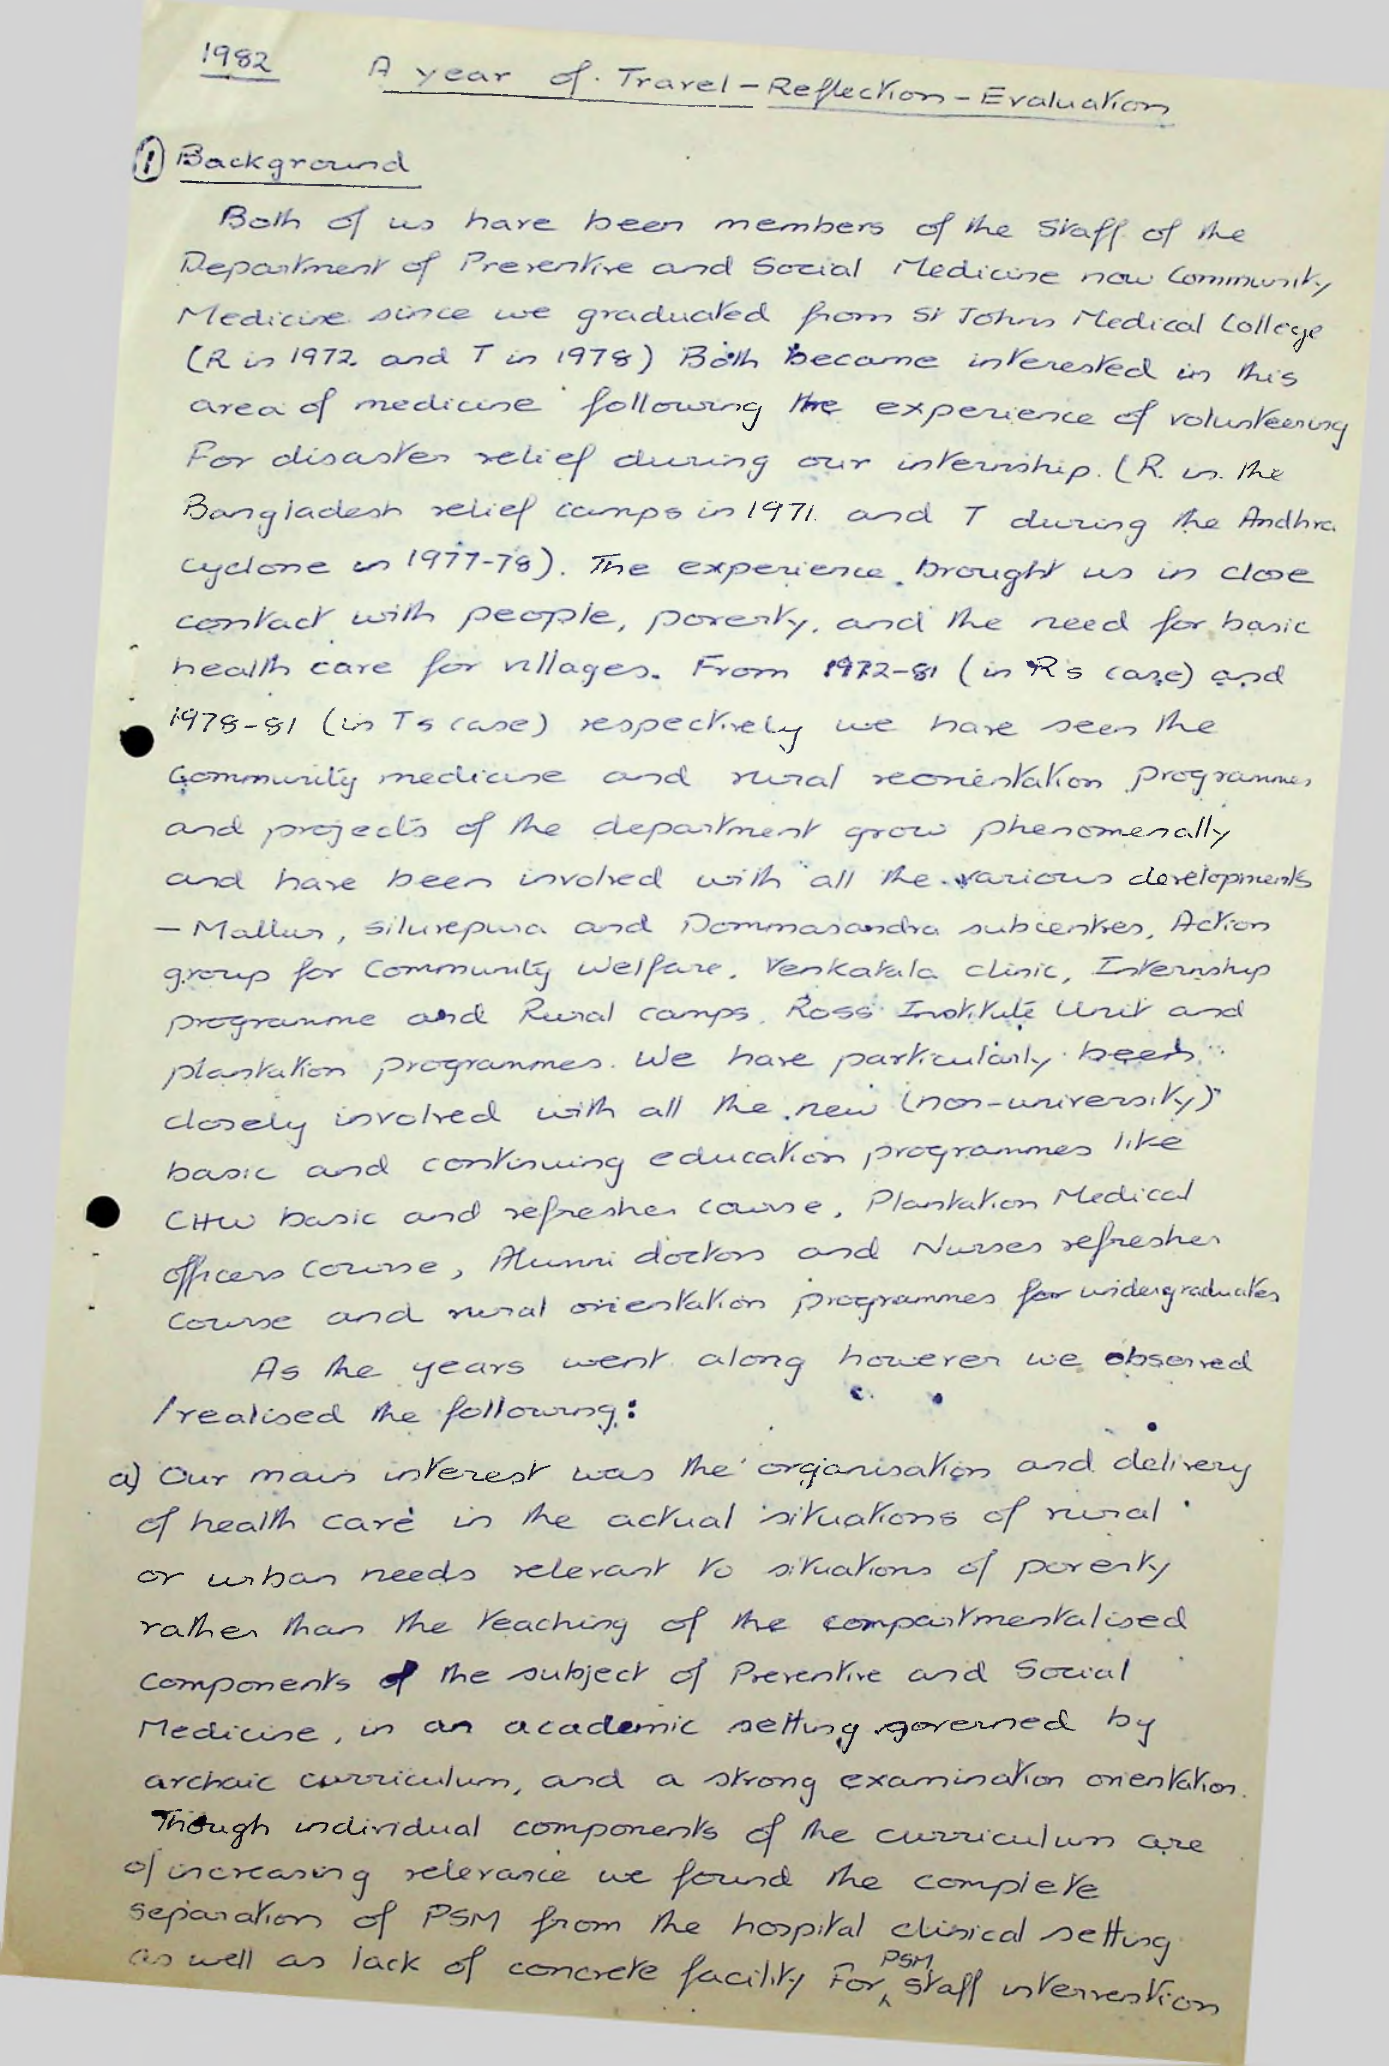 1982 A year of Travel - Reflection - Evaluation
1 Background
Both of us have been members of the Staff of the
Department of Preventive and Social Medicine now Community
Medicine since we graduated from St Johns Medical College
(R in 1972 and T in 1978) Both became interested in this
area of medicine following the experience of volunteering
For disaster relief during our internship. (R. in the
Bangladesh relief camps in 1971 and T during the Andhra
cyclone in 1977-78). The experience brought us in close
contact with people, poverty, and the need for basic
health care for villages. From 1972-81 (in Rs case) and
1978-81 (in Ts case) respectively we have seen the
Community medicine and rural reorientation programmes
and projects of the department grow phenomenally
and have been involved with all the various developments
- Mallur, Silvepura and Dommasandra subcentres, Action
group for Community Welfare, Venkatala clinic, Internship
programme and Rural camps, Ross Institute Unit and
plantation programmes. We have particularly been
closely involved with all the new (non-university)
basic and continuing education programmes like
CHW basic and refresher course, Plantation Medical
officers course, Alumni doctors and Nurses refresher
course and rural orientation programmes for undergraduates
As the years went along however we observed
/realised the following:
a) Our main interest was the organisation and delivery
of health care in the actual situations of rural
or urban needs relevant to situations of poverty
rather than the teaching of the compartmentalised
components of the subject of Preventive and Social
Medicine, in an academic setting governed by
archaic curriculum, and a strong examination orientation.
Though individual components of the curriculum are
of increasing relevance we found the complete
separation of PSM from the hospital clinical setting
as well as lack of concrete facility For PSM staff intervention